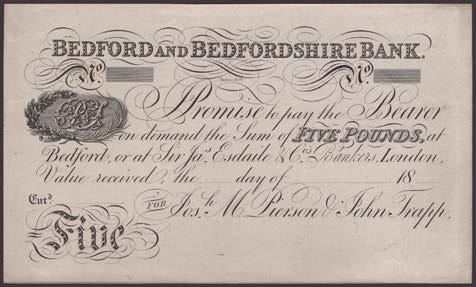 BEDFORD AND BEDFORDSHIRE BANK.
No. No.
I Promise to pay the Bearer
on demand the Sum of FIVE POUNDS, at
Bedford, or at Sir Jas. Esdaile & Cos. Bankers, London,
Value received, the day of 18
Entd. FOR Josh. M. Pierson & John Trapp,
Five